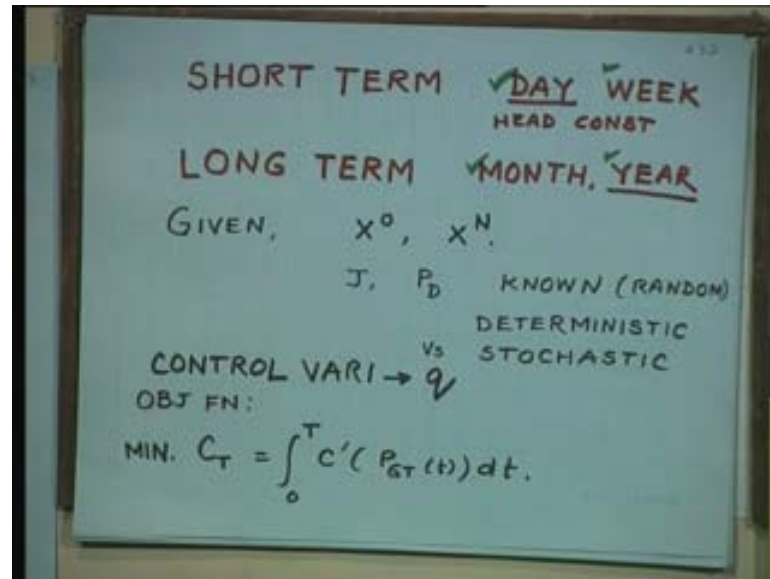 SHORT TERM ✓DAY ✓WEEK
HEAD CONST
LONG TERM ✓MONTH, ✓YEAR
GIVEN, X⁰, Xᴺ.
J, P_D KNOWN (RANDOM)
DETERMINISTIC
Vs STOCHASTIC
CONTROL VARI → q
OBJ FN:
MIN. C_T = ∫₀ᵀ C′( P_GT (t)) dt.